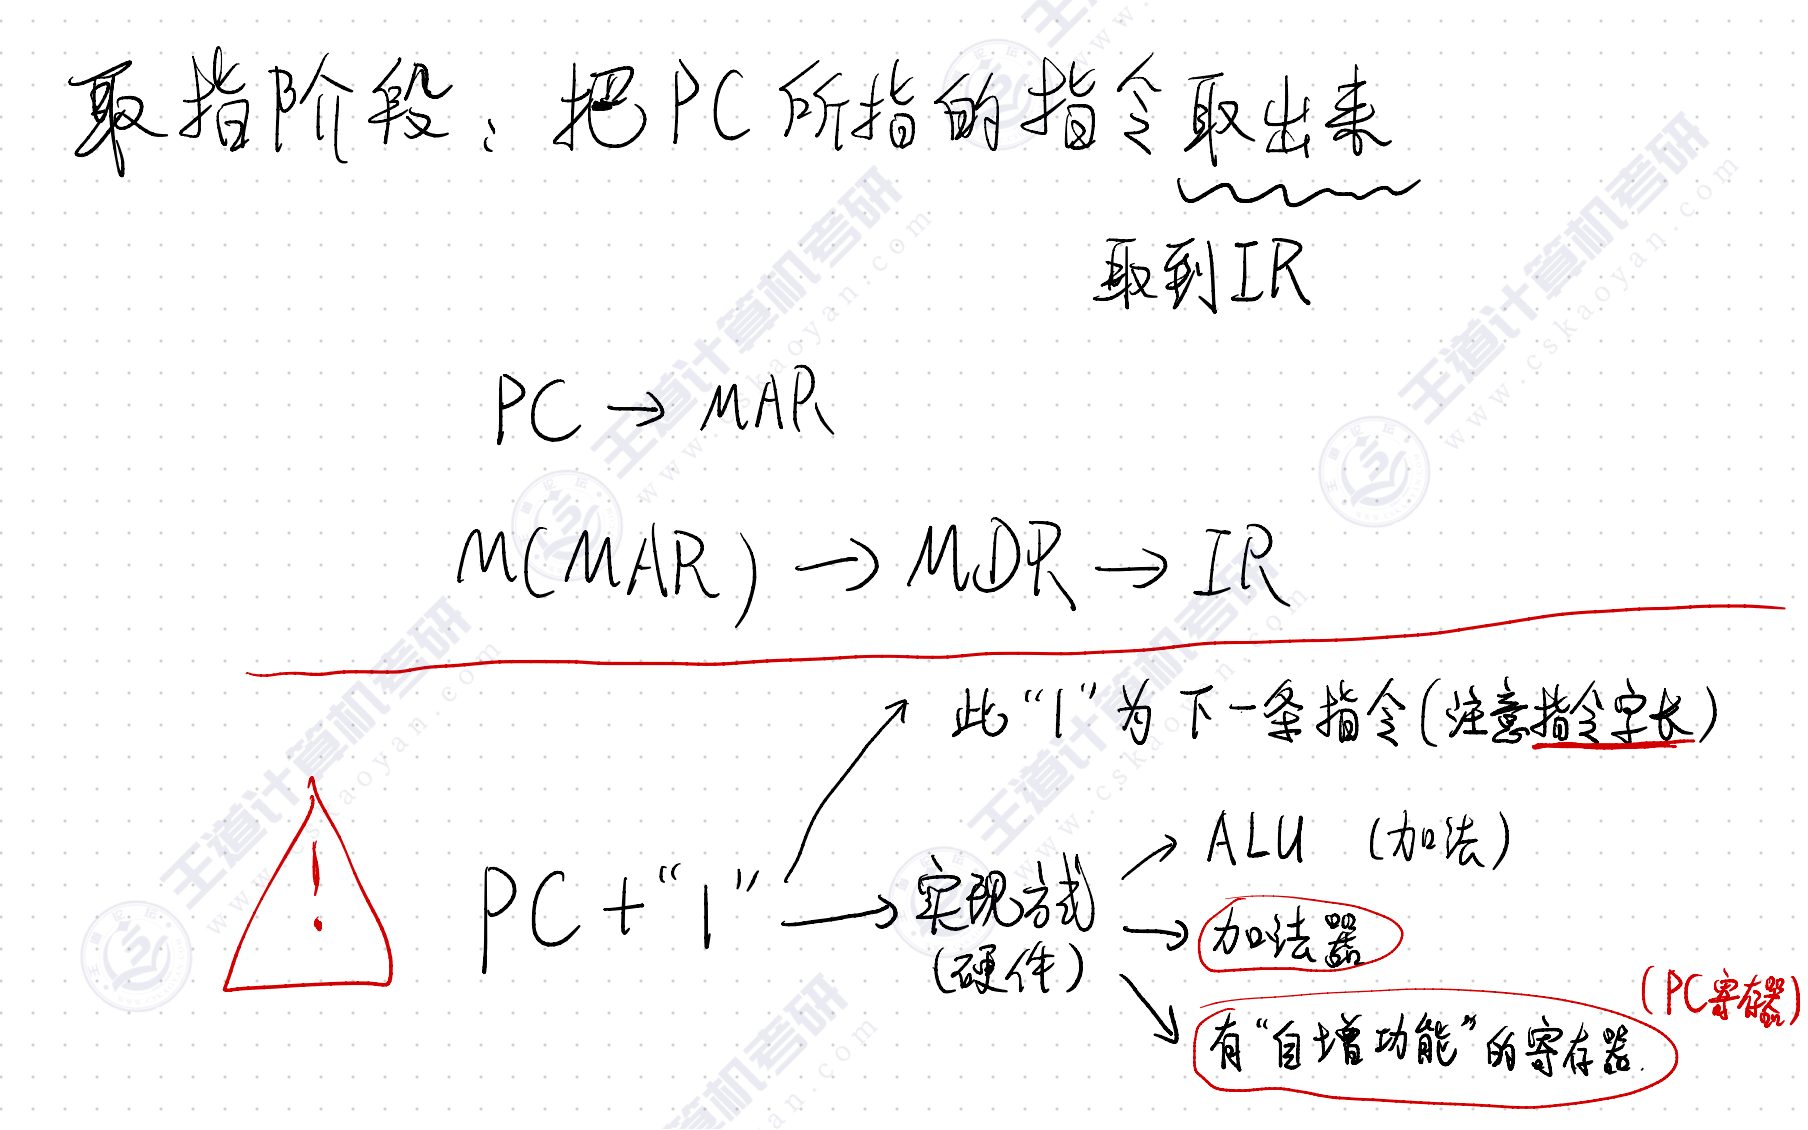 取指阶段：把PC所指的指令取出来
取到IR
PC → MAR
M(MAR) → MDR → IR
此“1”为下一条指令(注意指令字长)
PC+“1” → 实现方式
(硬件)
ALU (加法)
加法器
(PC寄存器)
有“自增功能”的寄存器.
王道计算机考研
www.cskaoyan.com